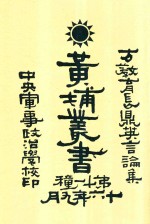 方教育長鼎英言論集
黃埔叢書
第一種
十六年
月
中央軍事政治學校印